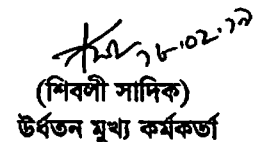 ১৮.০২.১৯
(শিবলী সাদিক)
উর্ধতন মুখ্য কর্মকর্তা